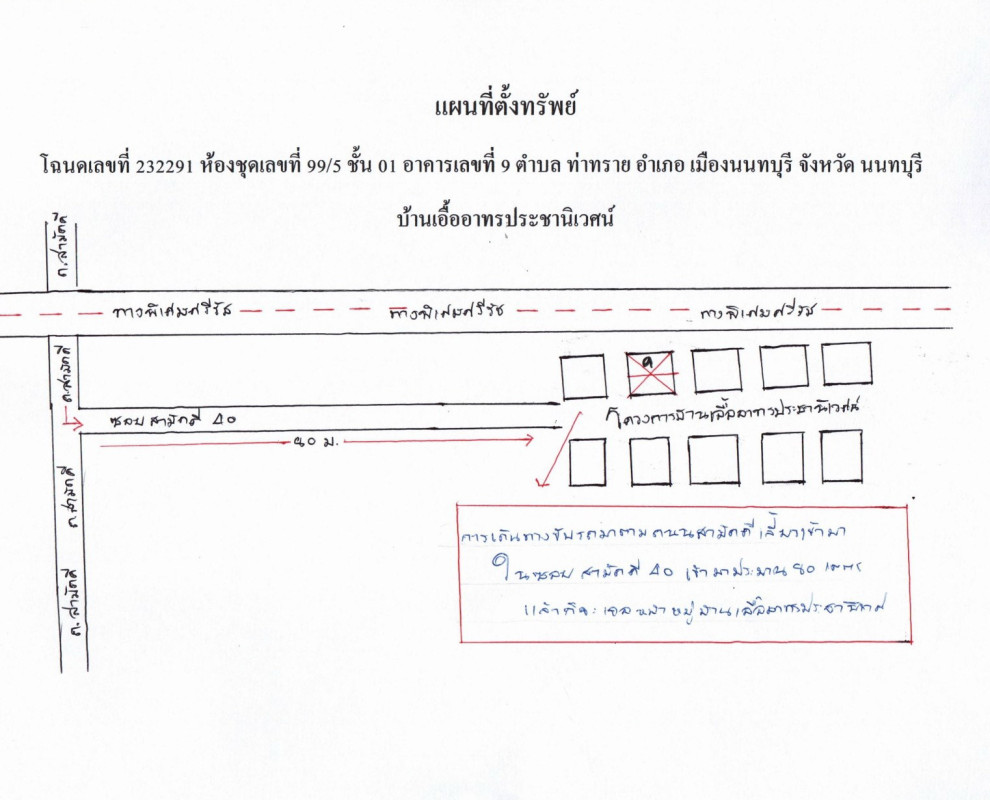 แผนที่ตั้งทรัพย์
โฉนดเลขที่ 232291 ห้องชุดเลขที่ 99/5 ชั้น 01 อาคารเลขที่ 9 ตำบล ท่าทราย อำเภอ เมืองนนทบุรี จังหวัด นนทบุรี
บ้านเอื้ออาทรประชานิเวศน์
ถ.สามัคคี
ทางพิเศษศรีรัช ทางพิเศษศรีรัช ทางพิเศษศรีรัช
ถ.สามัคคี
ซอย สามัคคี 40
โครงการบ้านเอื้ออาทรประชานิเวศน์
ม.
ถ.สามัคคี
ถ.สามัคคี
การเดินทางขับรถมาตามถนนสามัคคี เลี้ยวเข้ามา
ในซอย สามัคคี 40 เข้ามาประมาณ เมตร
แล้วก็จะเจอ หมู่บ้านเอื้ออาทรประชานิเวศ